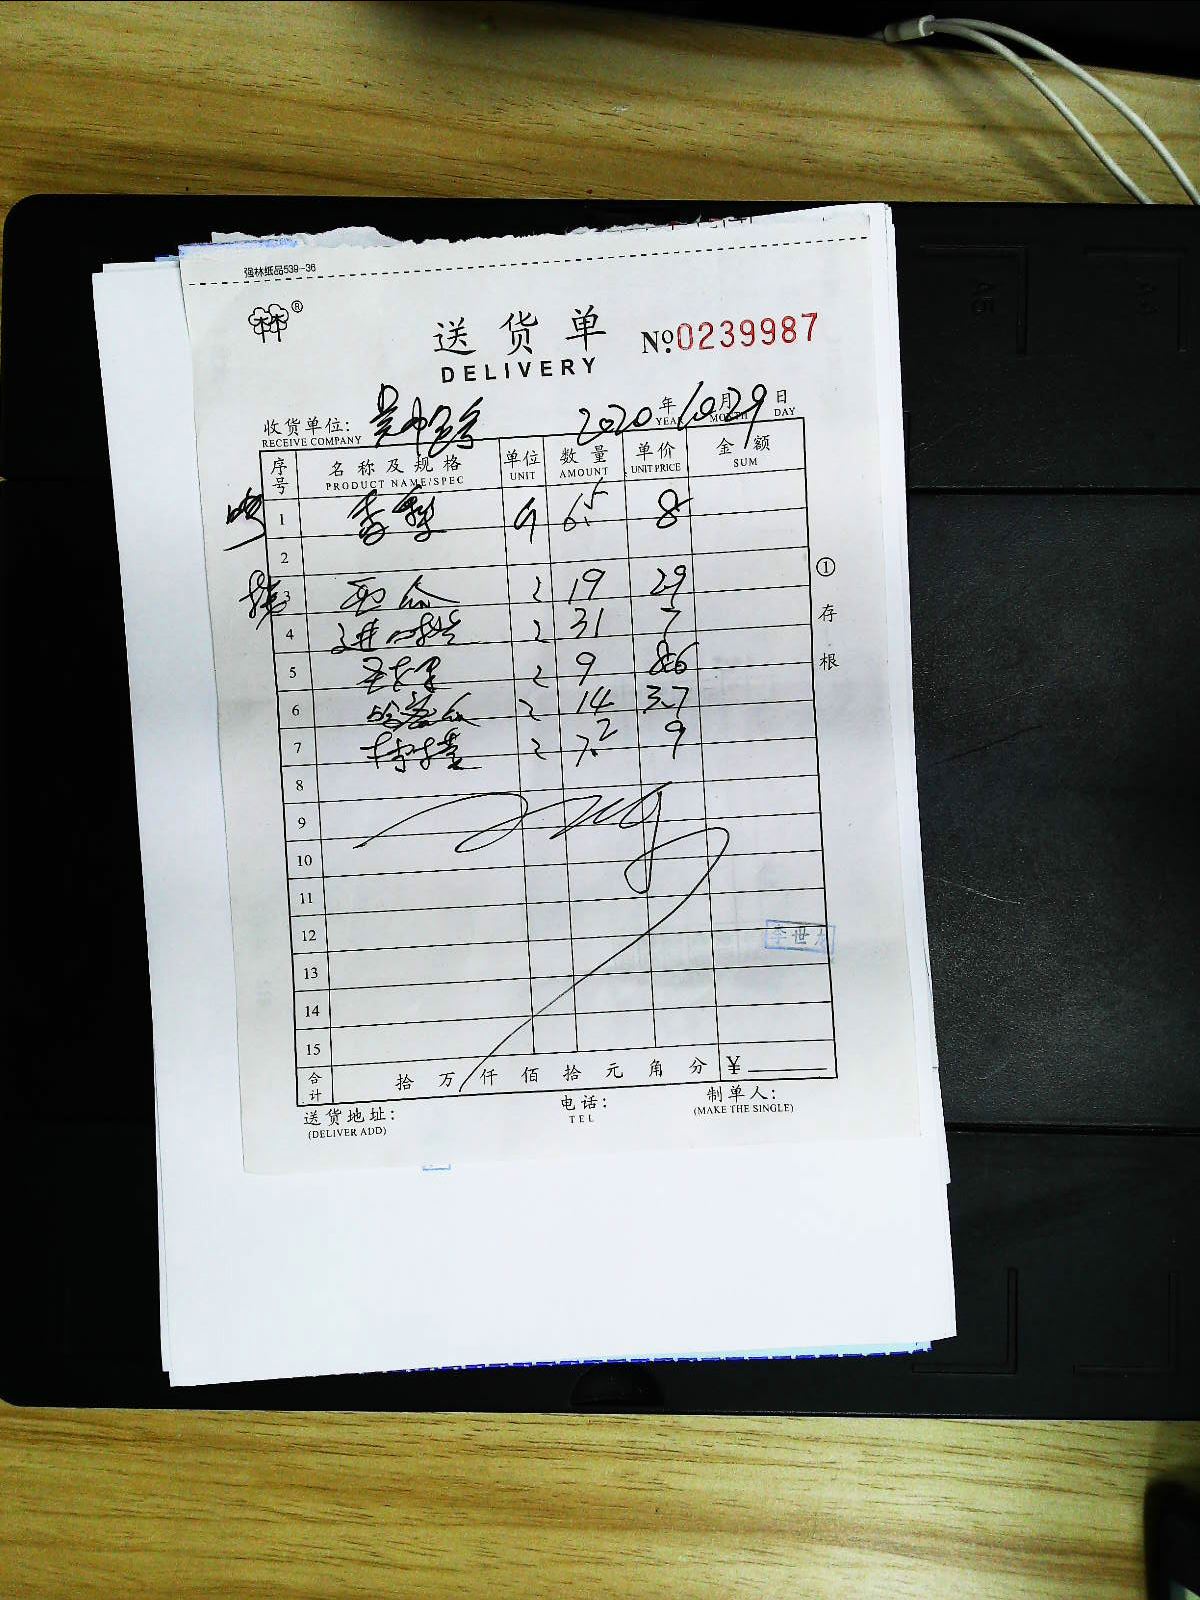 强林纸品539-36
林林®
送货单 №0239987
DELIVERY
收货单位: 2020年10月29日
RECEIVE COMPANY YEAR MONTH DAY
序号 名称及规格 单位 数量 单价 金额
PRODUCT NAME/SPEC UNIT AMOUNT UNIT PRICE SUM
1 香梨 6.5 8
2
3 西瓜 19 29
4 进口 31 7
5 9 8.6
6 哈密瓜 14 3.7
7 7.2 9
8
9
10
11
12 李世
13
14
15
合计 拾万仟佰拾元角分 ¥
送货地址: 电话: 制单人:
(DELIVER ADD) TEL (MAKE THE SINGLE)
①存根